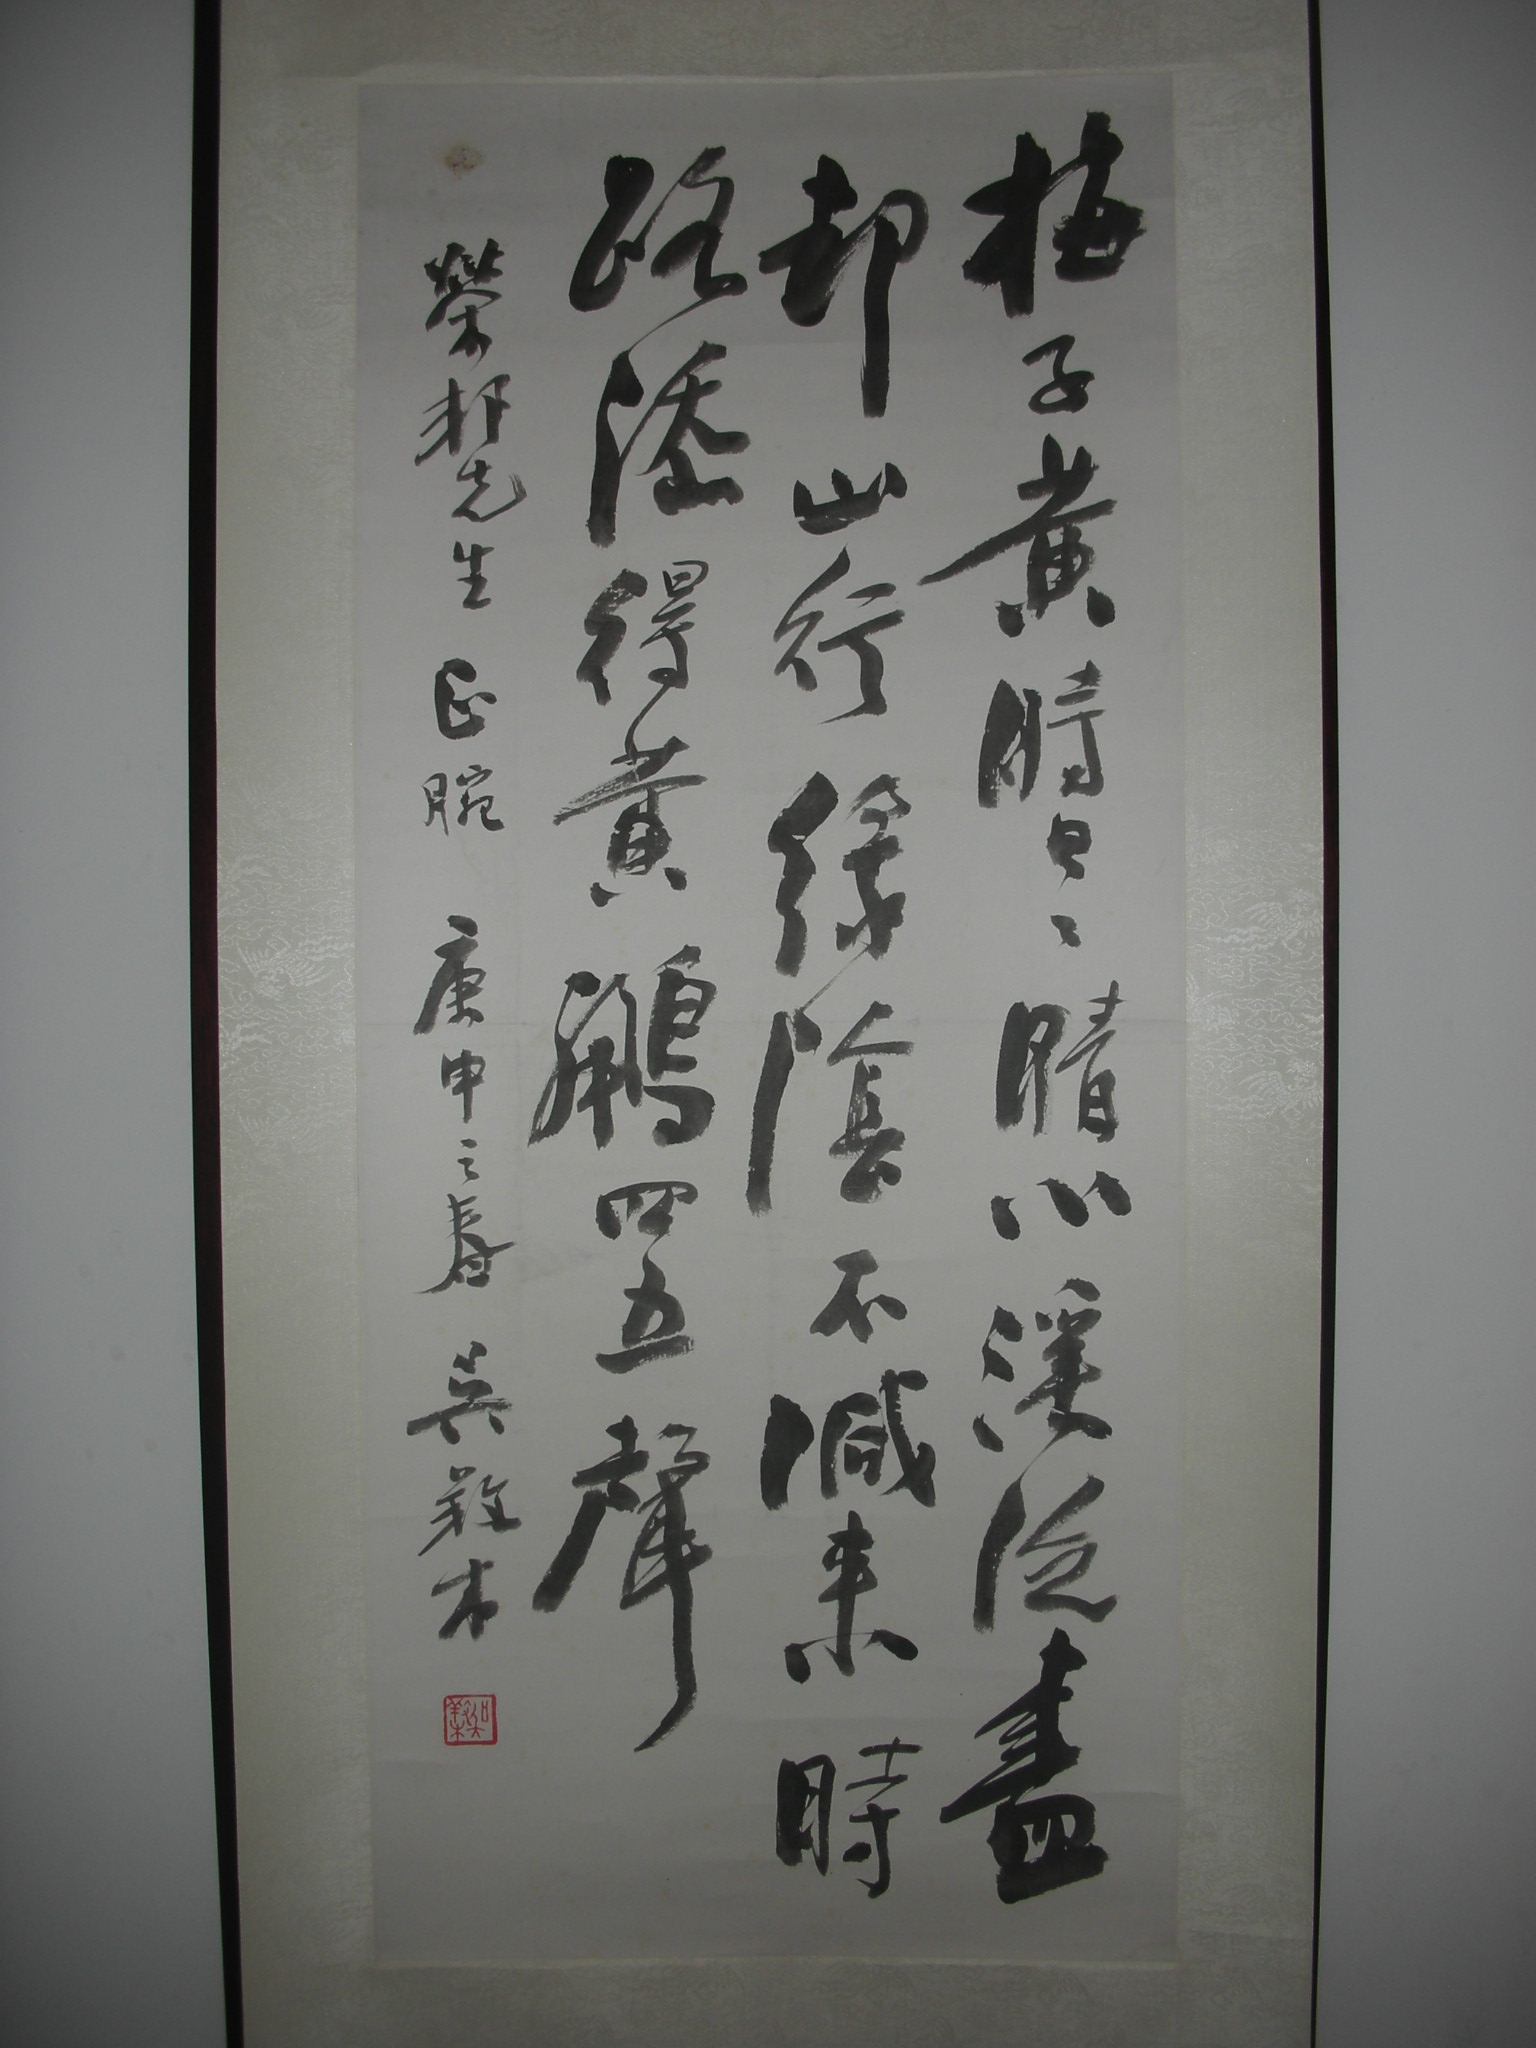 梅子黄時日々晴小溪泛盡
却山行綠陰不減来時
路添得黄鸝四五聲
榮邦先生 正腕 庚申之春 吳敬木